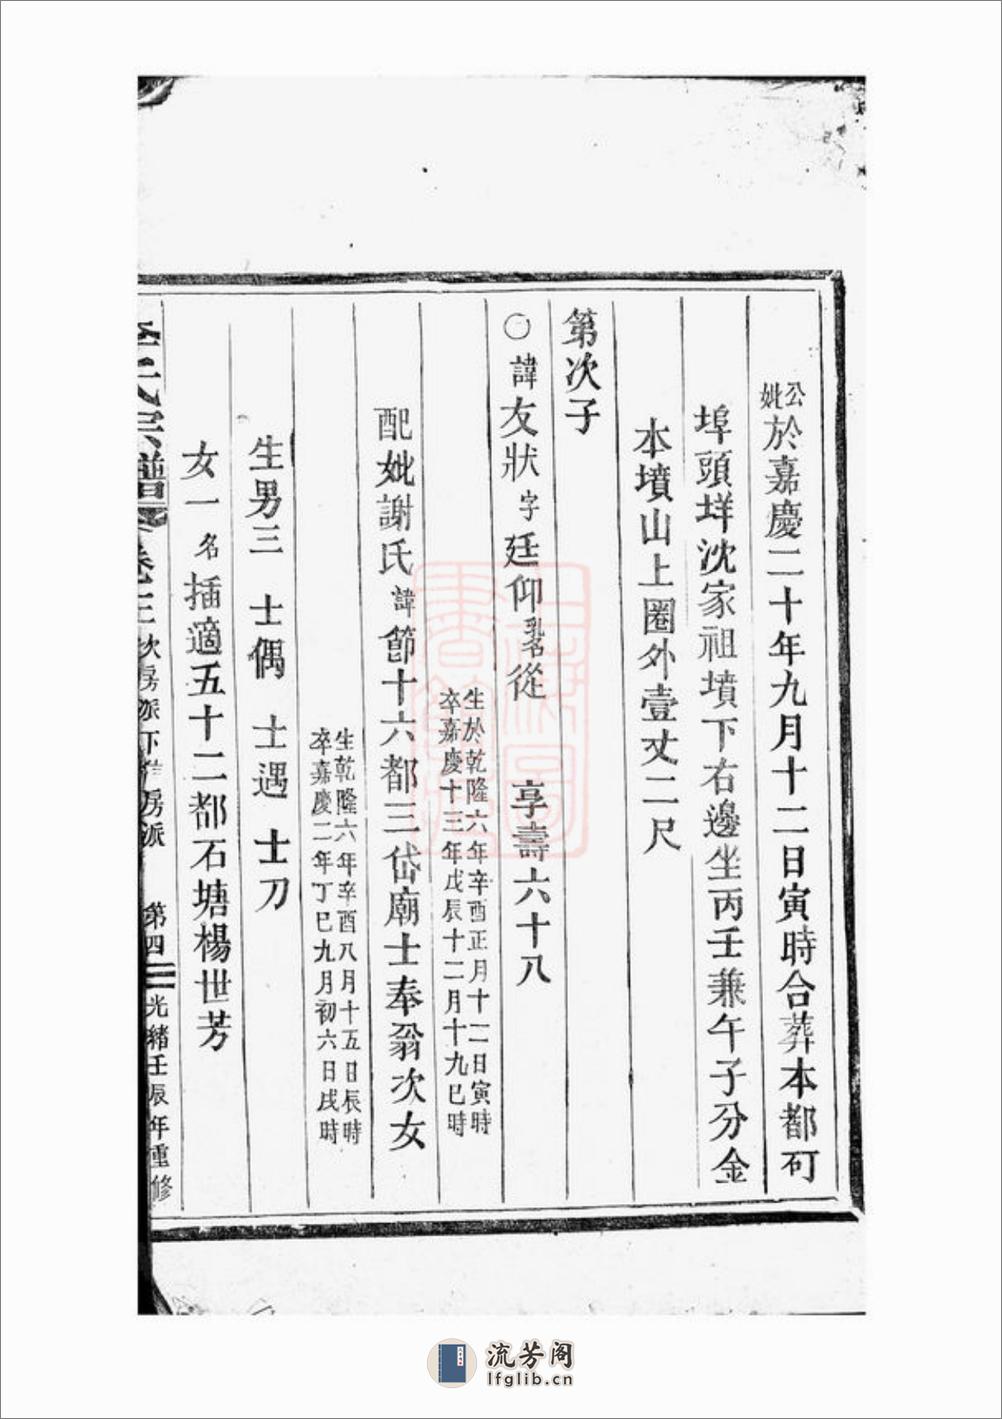 公妣於嘉慶二十年九月十二日寅時合葬本都矴
埠頭垟沈家祖墳下右邊坐丙壬兼午子分金
本墳山上圈外壹丈二尺
第次子
〇諱友狀字廷仰乳名從 享壽六十八
生於乾隆六年辛酉正月十二日寅時
卒嘉慶十三年戊辰十二月十九巳時
配妣謝氏諱節十六都三岱廟士奉翁次女
生乾隆六年辛酉八月十五日辰時
卒嘉慶二年丁巳九月初六日戌時
生男三 士偶 士遇 士刀
女一名插適五十二都石塘楊世芳
李氏宗譜 卷之三 次房派下 房派 第四 光緒壬辰年重修
流芳阁
lfglib.cn